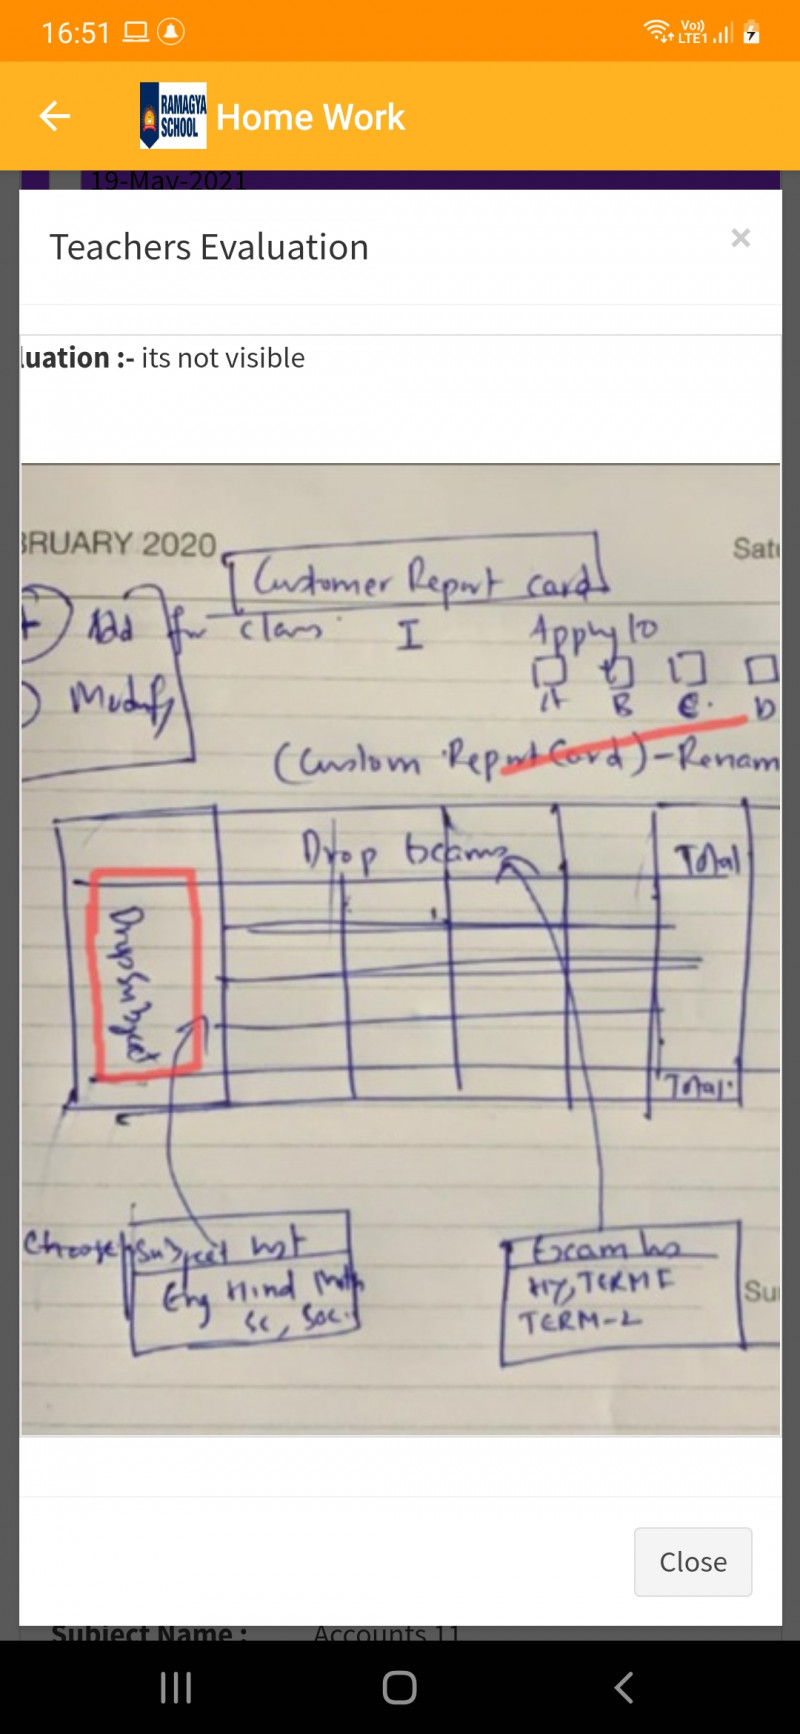 16:51
Vo))
LTE1
RAMAGYA
SCHOOL
Home Work
19-May-2021
Teachers Evaluation
×
luation :- its not visible
BRUARY 2020
Satu
Customer Report card
+ Add for class I
Apply to
Modify
A B C. D
(Custom Report Card)-Renam
Drop
Total
Drop Subject
Total
Choose Subject list
Eng Hind Math
Sc, Soc.
Exam
HY, TERM I
TERM-2
Su
Close
Subject Name :
Accounts 11